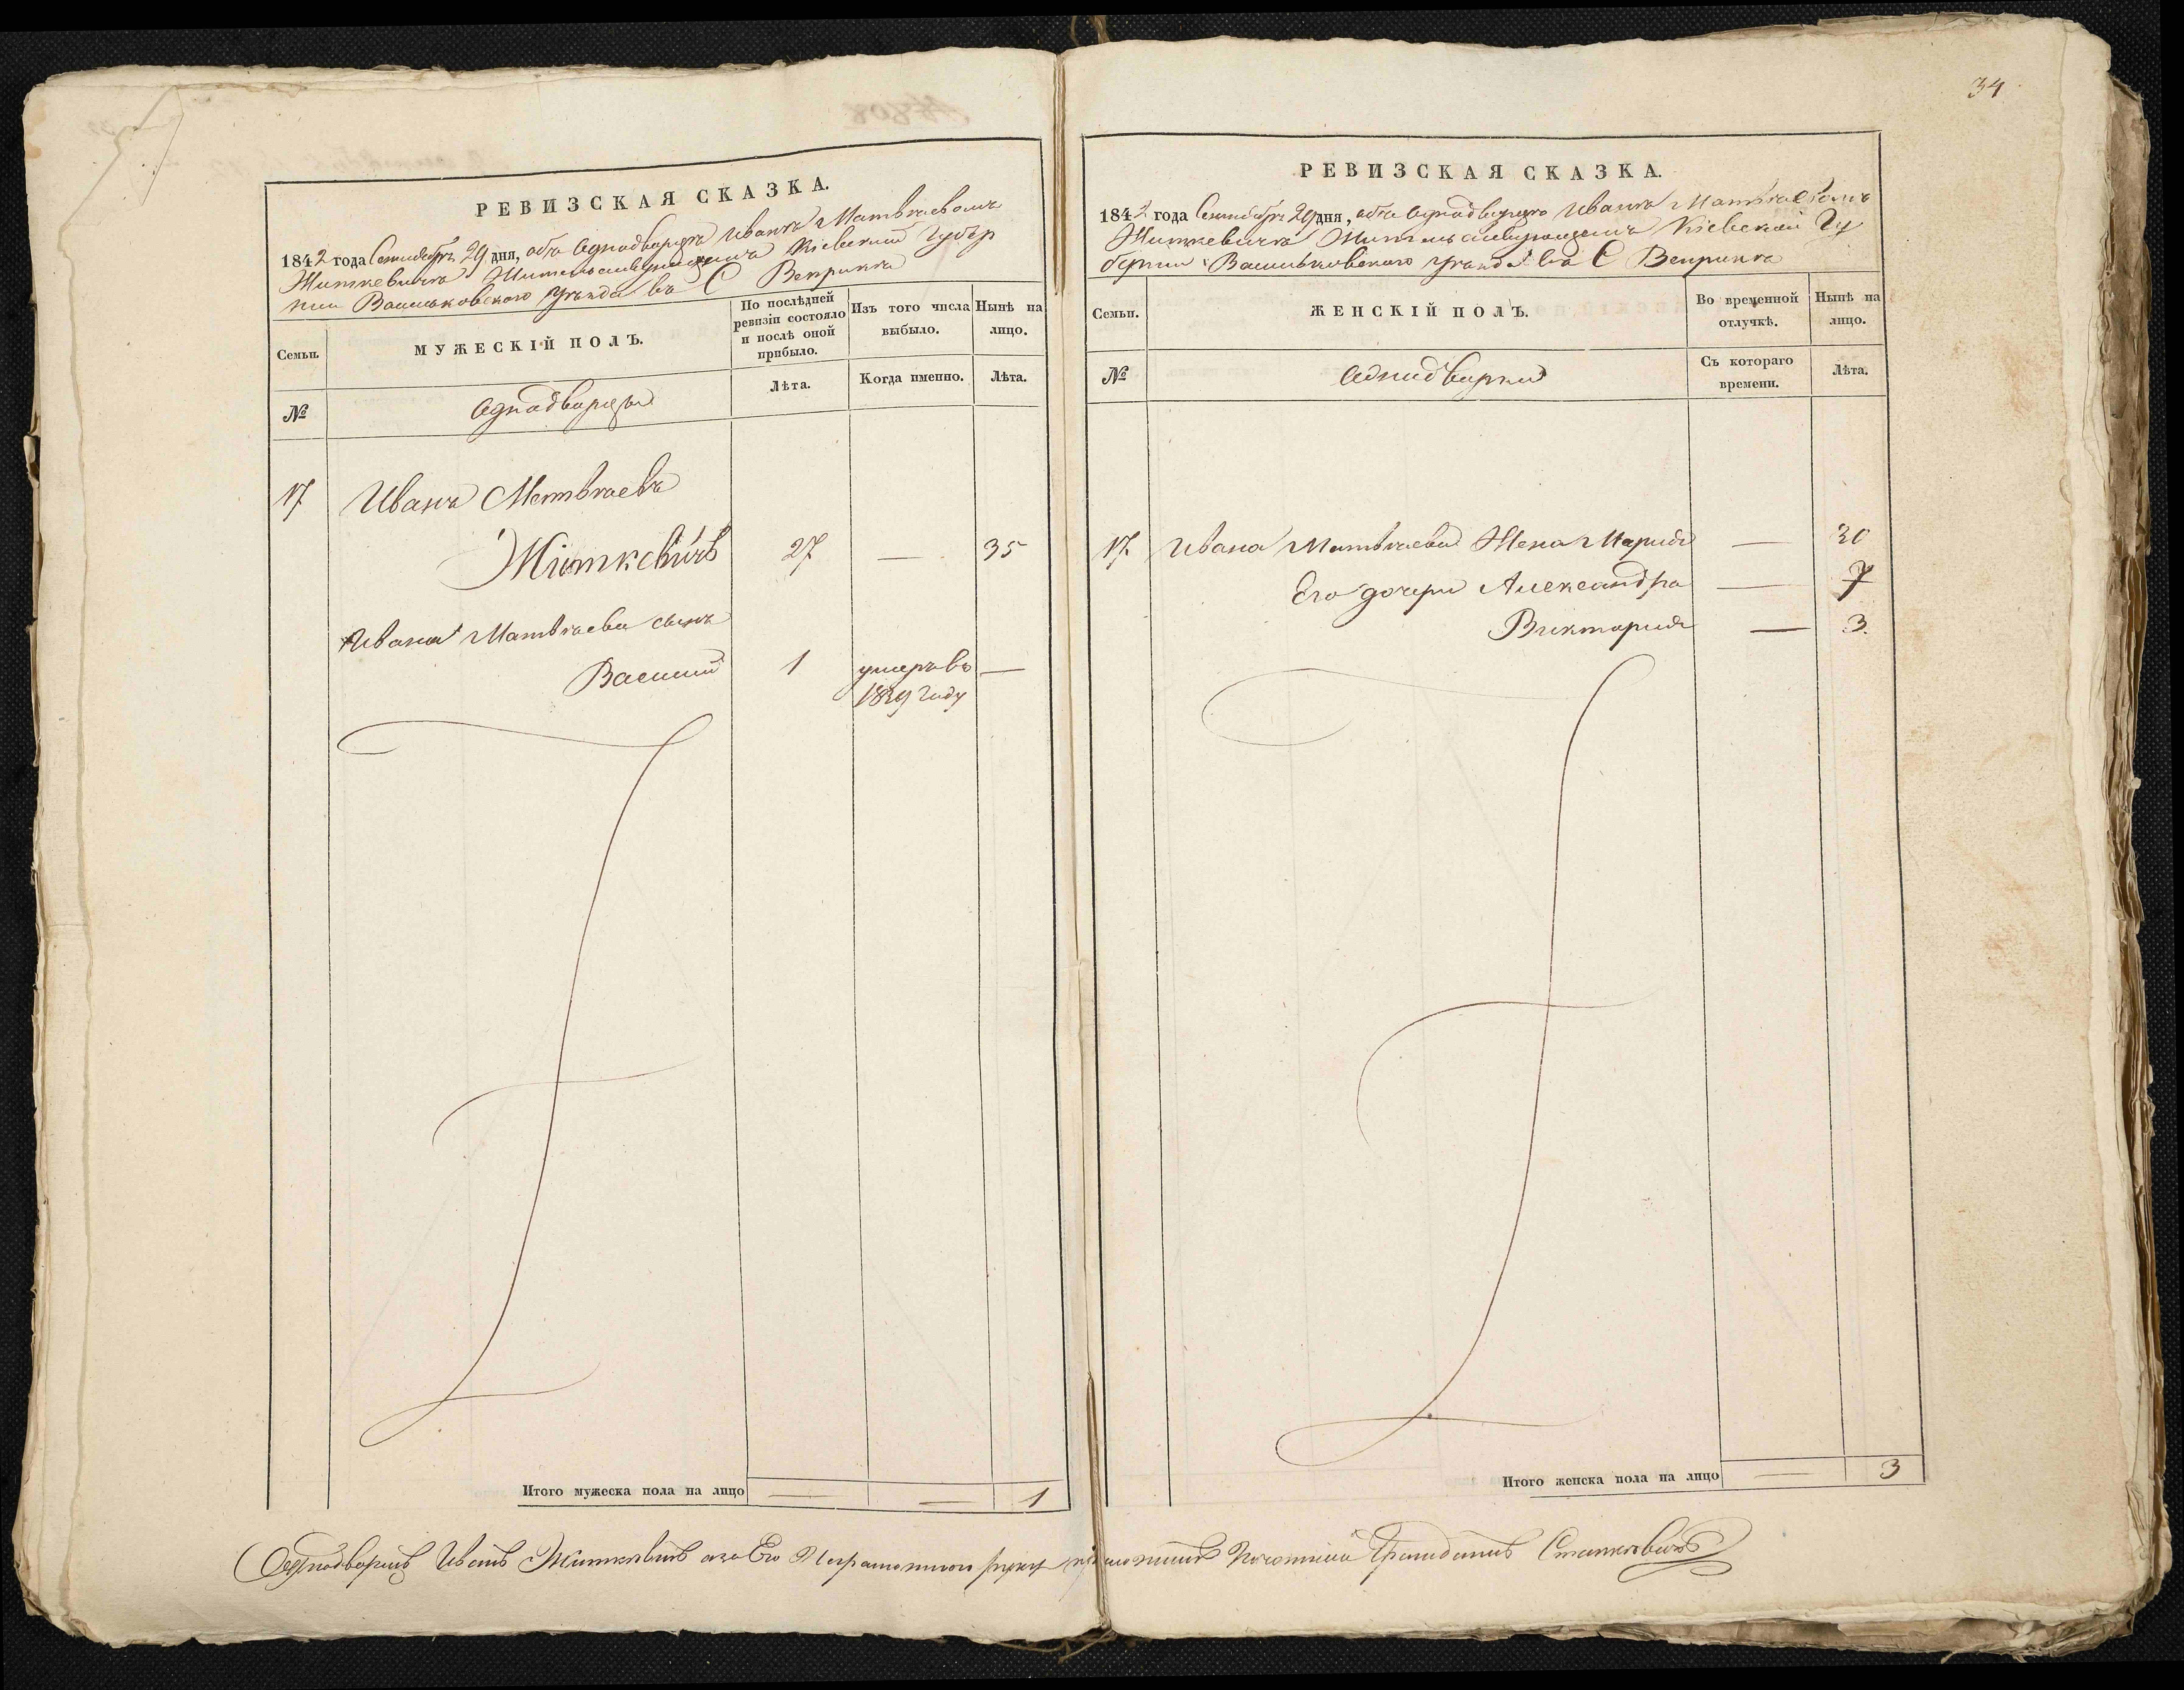 34
РЕВИЗСКАЯ СКАЗКА.
1842 года Сентября 29 дня, объ Аднадворцѣ Иванѣ Матвѣевомъ
Житкевичѣ Жительствующемъ Кіевской Губер
ніи Васильковскаго уѣзда въ С Веприкѣ
Семьи.
МУЖЕСКІЙ ПОЛЪ.
По послѣдней ревизіи состояло и послѣ оной прибыло.
Изъ того числа выбыло.
Нынѣ на лицо.
№
Аднадворцы
Лѣта.
Когда именно.
Лѣта.
17 Иванъ Матвѣевъ
Житкевичъ 27 — 35
Ивана Матвѣева сынъ
Василий 1 умеръ въ —
1839 году
Итого мужеска пола на лицо — — 1
РЕВИЗСКАЯ СКАЗКА.
1842 года Сентября 29 дня, объ Аднадворцѣ Иванѣ Матвѣевомъ
Житкевичѣ Жительствующемъ Кіевской Гу
берніи Васильковскаго уѣзда въ С Веприкѣ
Семьи.
ЖЕНСКІЙ ПОЛЪ.
Во временной отлучкѣ.
Нынѣ на лицо.
№
Аднадворки
Съ котораго времени.
Лѣта.
17. Ивана Матвѣева Жена Марія — 30
Его дочери Александра — 7
Викторія — 3.
Итого женска пола на лицо — 3
Однодворецъ Иванъ Житкевичъ а за Его Неграмотного руку приложилъ Почотный Гражданинъ Станкевичъ